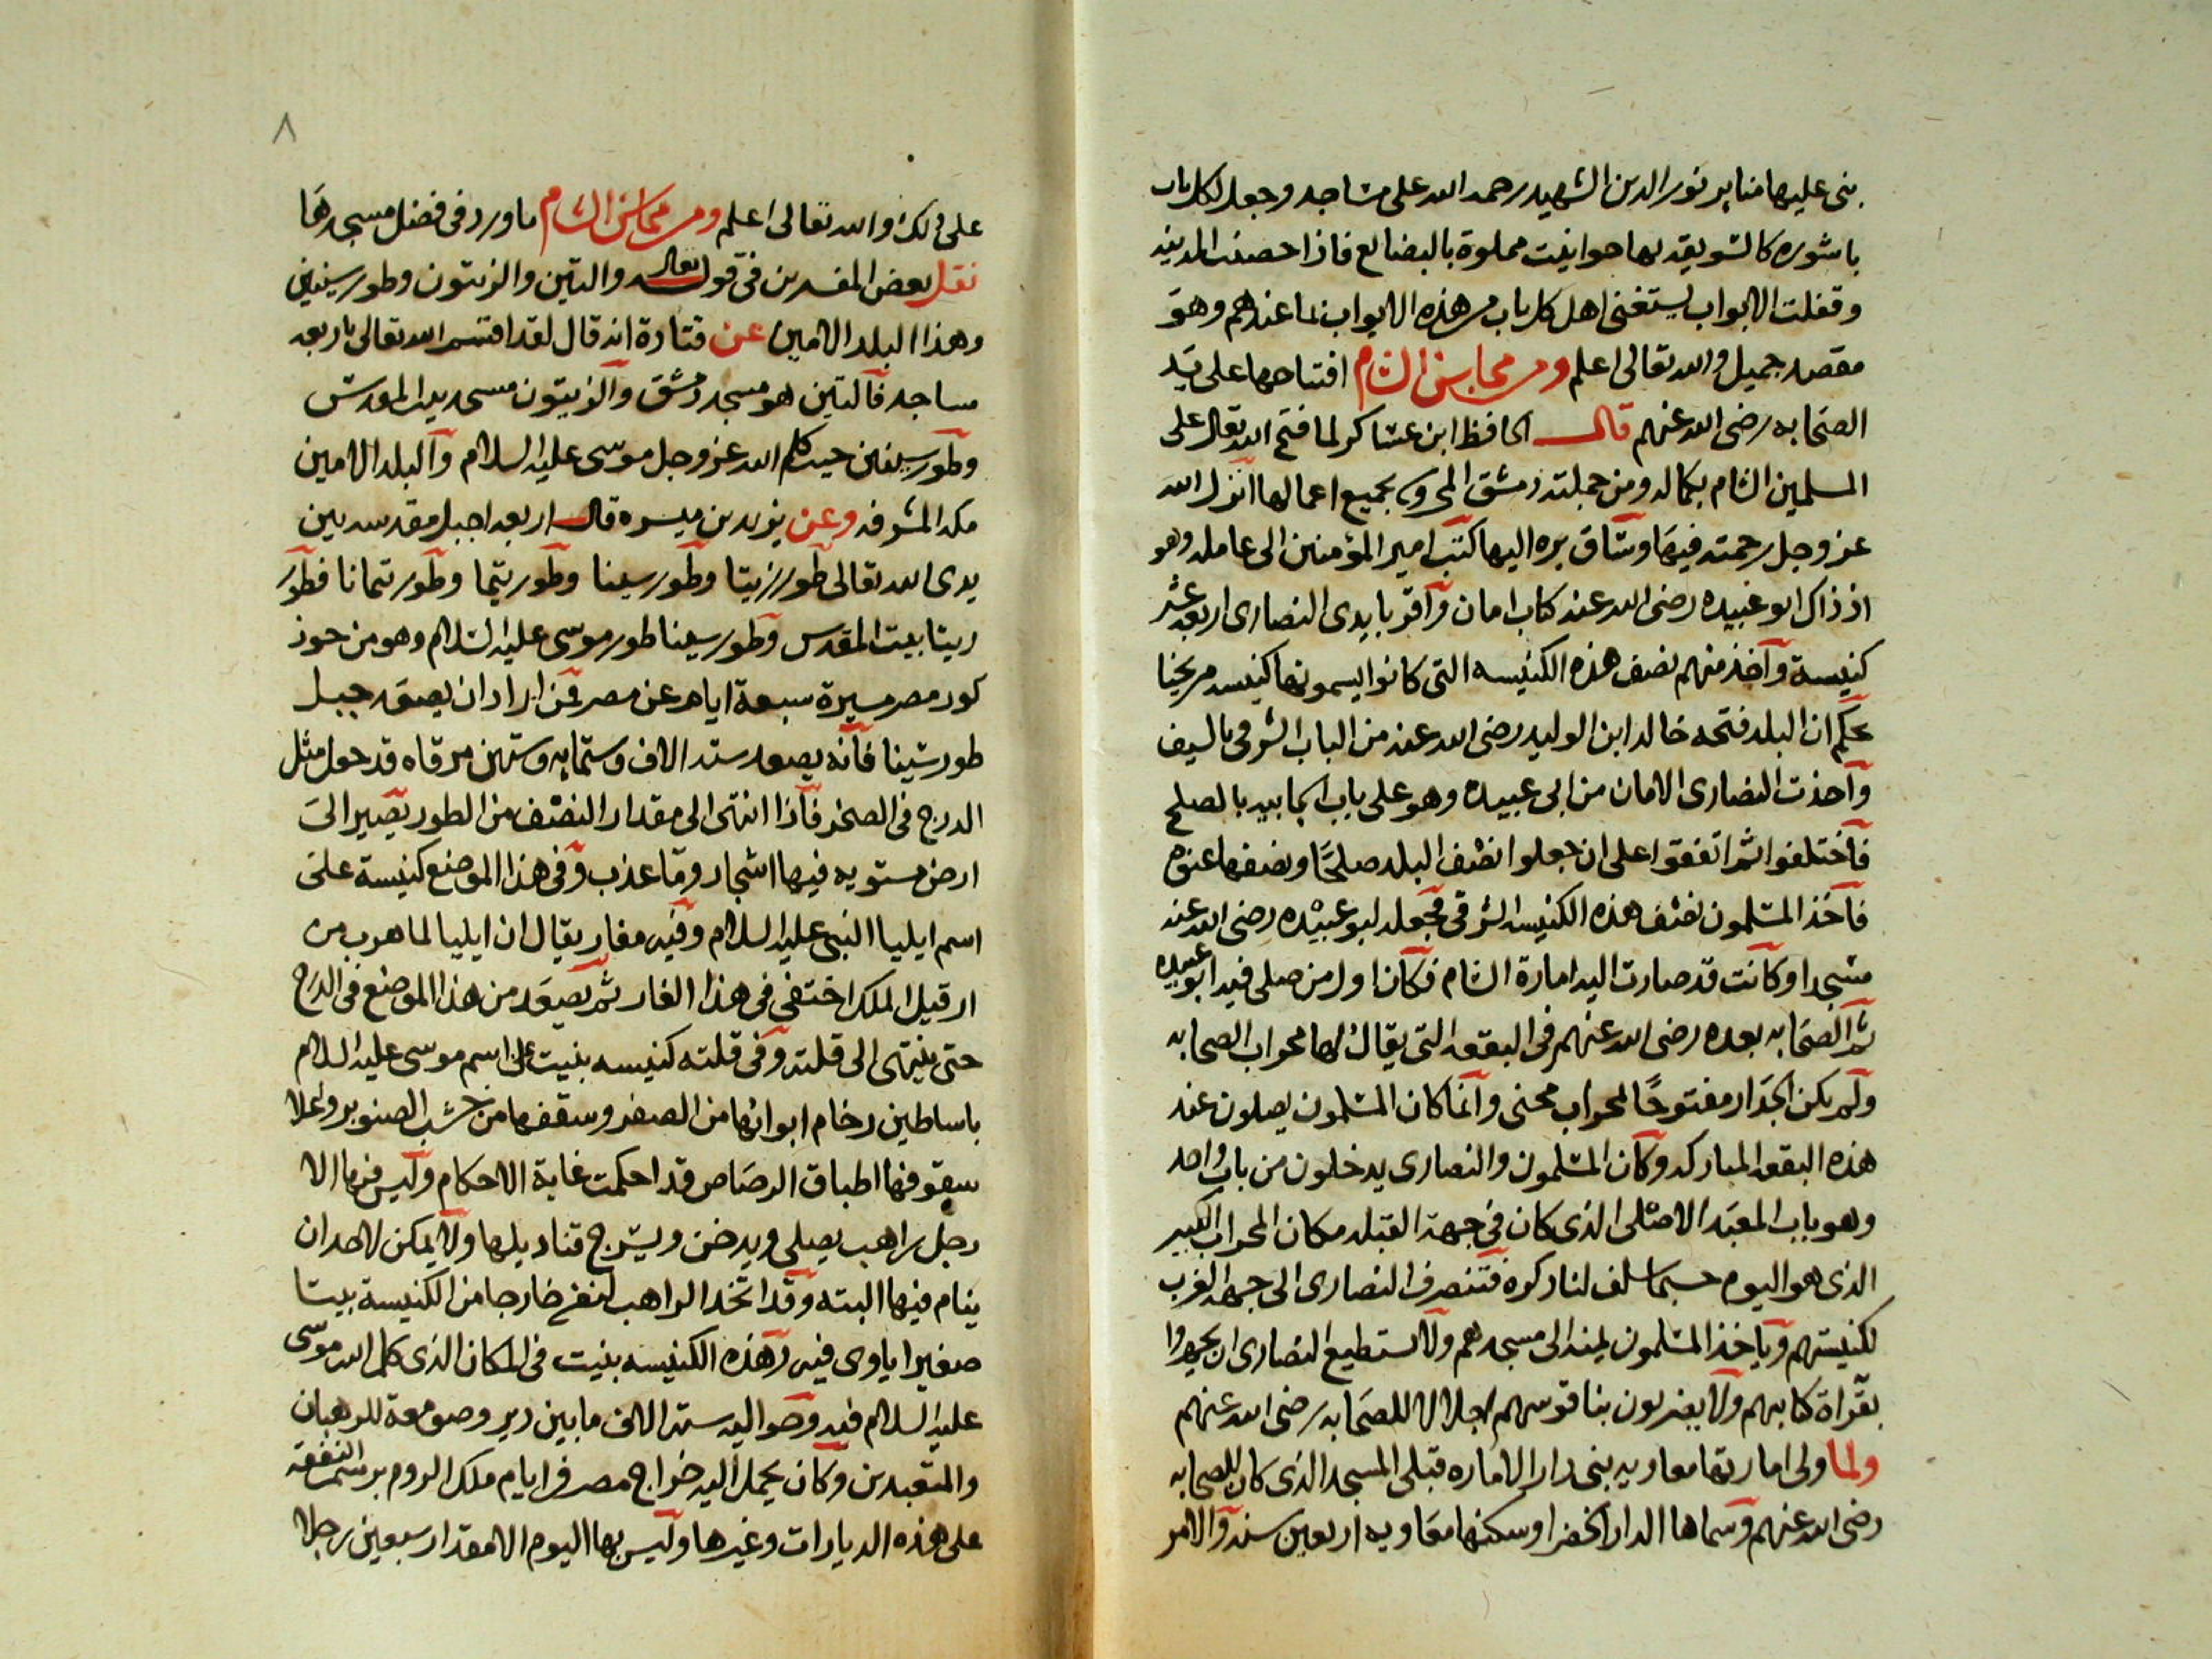 بنى عليها منابر نور الدين الشهيد رحمه الله على مساجد وجعل لكل باب
باشوره كالسويقه بها حوانيت مملوة بالبضايع فاذا حصنت المدينه
وقفلت الابواب يستغنى اهل كل باب من هذه الابواب بما عندهم وهو
مقصد جميل والله تعالى اعلم ومن محاسن الشام افتتاحها على يد
الصحابه رضى الله عنهم قال الحافظ ابن عساكر لما فتح الله تعالى على
المسلمين الشام بكماله ومن جملته دمشق المحروسه بجميع اعمالها انزل الله
عز وجل رحمته فيها وساق بره اليها كتب امير المؤمنين الى عامله وهو
اذ ذاك ابو عبيده رضى الله عنه كتاب امان واقر بايدى النصارى اربعه عشر
كنيسة واخذ منهم نصف هذه الكنيسه التى كانوا يسمونها كنيسه مريحنا
بحكم ان البلد فتحه خالد ابن الوليد رضى الله عنه من الباب الشرقى بالسيف
واخذت النصارى الامان من ابى عبيده وهو على باب الجابيه بالصلح
فاختلفوا ثم اتفقوا على ان جعلوا نصف البلد صلحا ونصفها عنوه
فاخذ المسلمون نصف هذه الكنيسه الشرقى فجعله ابو عبيده رضى الله عنه
مسجدا وكانت قد صارت اليه امارة الشام فكان اول من صلى فيه ابو عبيده
ثم الصحابه بعده رضى الله عنهم فى البقعه التى يقال لها محراب الصحابه
ولم يكن الجدار مفتوحا لمحراب محنى وانما كان المسلمون يصلون عند
هذه البقعه المباركه وكان المسلمون والنصارى يدخلون من باب واحد
وهو باب المعبد الاصلى الذى كان فى جهة القبله مكان المحراب الكبير
الذى هو اليوم حسبما سلف لنا ذكره فتنصرف النصارى الى جهة الغرب
لكنيستهم وياخذ المسلمون يمنه الى مسجدهم ولا تستطيع النصارى ان يجهروا
بقراة كتابهم ولا يضربون بناقوسهم اجلالا للصحابه رضى الله عنهم
ولما ولى امارتها معاويه بنى دار الاماره قبلى المسجد الذى كان للصحابه
رضى الله عنهم وسماها الدار الخضرا وسكنها معاويه اربعين سنه والامر
٨
على ذلك والله تعالى اعلم ومن محاسن الشام ما ورد فى فضل مسجدها
نقل بعض المفسرين فى قوله تعالى والتين والزيتون وطور سينين
وهذا البلد الامين عن قتادة انه قال لقد اقسم الله تعالى باربعه
مساجد فالتين هو مسجد دمشق والزيتون مسجد بيت المقدس
وطور سينين حيث كلم الله عز وجل موسى عليه السلام والبلد الامين
مكه المشرفه وعن يزيد بن ميسره قال اربعه اجبل مقدسه بين
يدى الله تعالى طور زيتا وطور سينا وطور تيما وطور تيمانا فطور
زيتا بيت المقدس وطور سينا طور موسى عليه السلام وهو من حوز
كور مصر مسيرة سبعة ايام عن مصر فمن اراد ان يصعد جبل
طور سينا فانه يصعد ستة الاف وستمايه وستين مرقاه قد حول مثل
الدرج فى الصخر فاذا انتهى الى مقدار النصف من الطور يصير الى
ارض مستويه فيها اشجار وما عذب وفى هذا الموضع كنيسة على
اسم ايليا النبى عليه السلام وفيه مغار يقال ان ايليا لما هرب من
ارقيل الملك اختفى فى هذا الغار ثم يصعد من هذا الموضع فى الدرج
حتى ينتهى الى قلته وفى قلته كنيسه بنيت على اسم موسى عليه السلام
باساطين رخام ابوابها من الصفر وسقفها من خشب الصنوبر واعلا
سقوفها اطباق الرصاص قد احكمت غاية الاحكام وليس فيها الا
رجل راهب يصلى ويدخن ويسرج قناديلها ولا يمكن لاحد ان
ينام فيها البته وقد اتخذ الراهب لنفسه خارجا من الكنيسة بيتا
صغيرا ياوى فيه وهذه الكنيسه بنيت فى المكان الذى كلم الله موسى
عليه السلام فيه وحواليه ستة الاف ما بين دير وصومعة للرهبان
والمتعبدين وكان يحمل اليه خراج مصر فى ايام ملك الروم برسم النفقه
على هذه الديارات وغيرها وليس بها اليوم الا مقدار سبعين رجلا